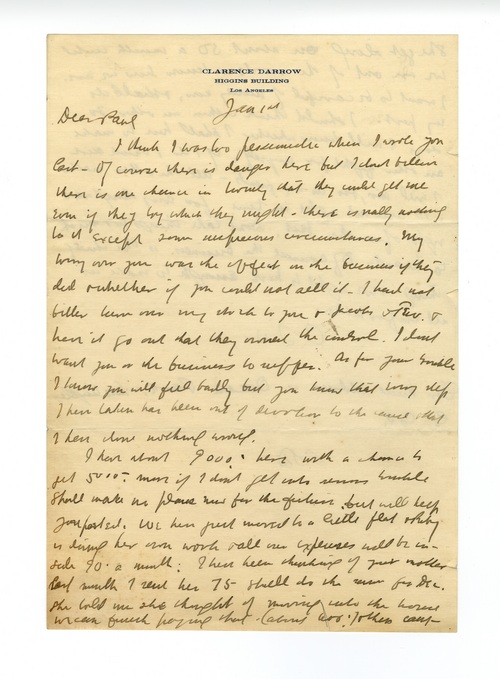 CLARENCE DARROW
HIGGINS BUILDING
LOS ANGELES
Jan 1st
Dear Paul
I think I was too pessimistic when I wrote you
last – Of course there is danger here but I dont believe
there is one chance in twenty that they could get me
even if they try which they might – there is really nothing
to it except some suspicious circumstances. My
worry over you was the effect on the business if they
did & whether if you could not sell it – I had not
better turn over my stock to you & &
have it go out that they owned the control. I dont
want you or the business to suffer. As for your trouble
I know you will feel badly but you know that every step
I have taken has been out of devotion to the cause & that
I have done nothing wrong.
I have about 9000 here with a chance to
get 5000 more if I dont get into serious trouble
Shall make no plans now for the future but will keep
you posted. We have just moved to a little flat & Ruby
is doing her own work & all our expenses will be in-
side 90. a month. I have been thinking of your mother
last month I sent her 75 – shall do the same for Dec.
She told me she thought of moving into the house
we can finish paying that (about 400) & then cant